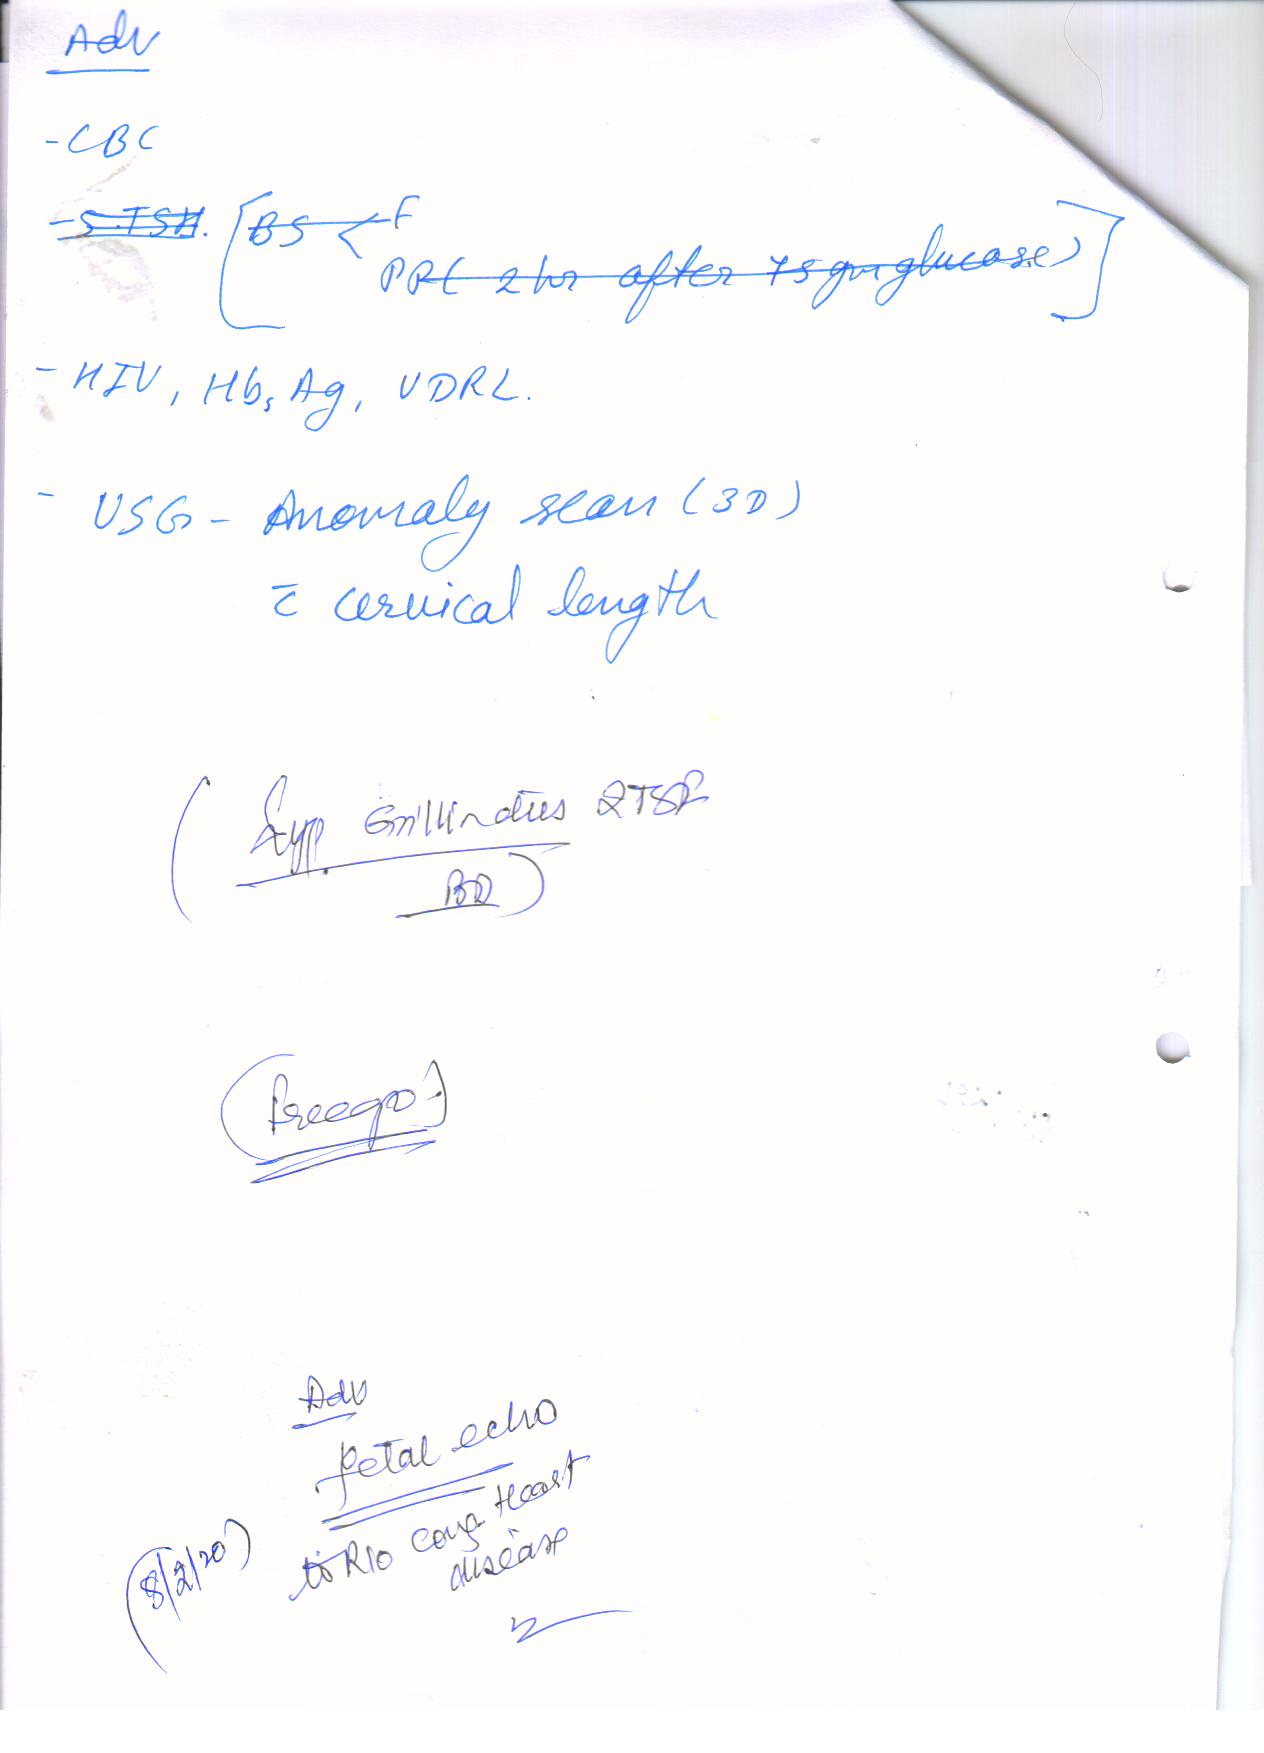 Adv
- CBC
- S.TSH. [BS < F
PP( 2 hr after 75 gm glucose)]
- HIV, HbsAg, VDRL.
- USG - Anomaly scan (3D)
c̄ cervical length
(Syp. 2TSF
BD)
Adv
fetal echo
to R/o cong Heart
disease
(8/2/20)